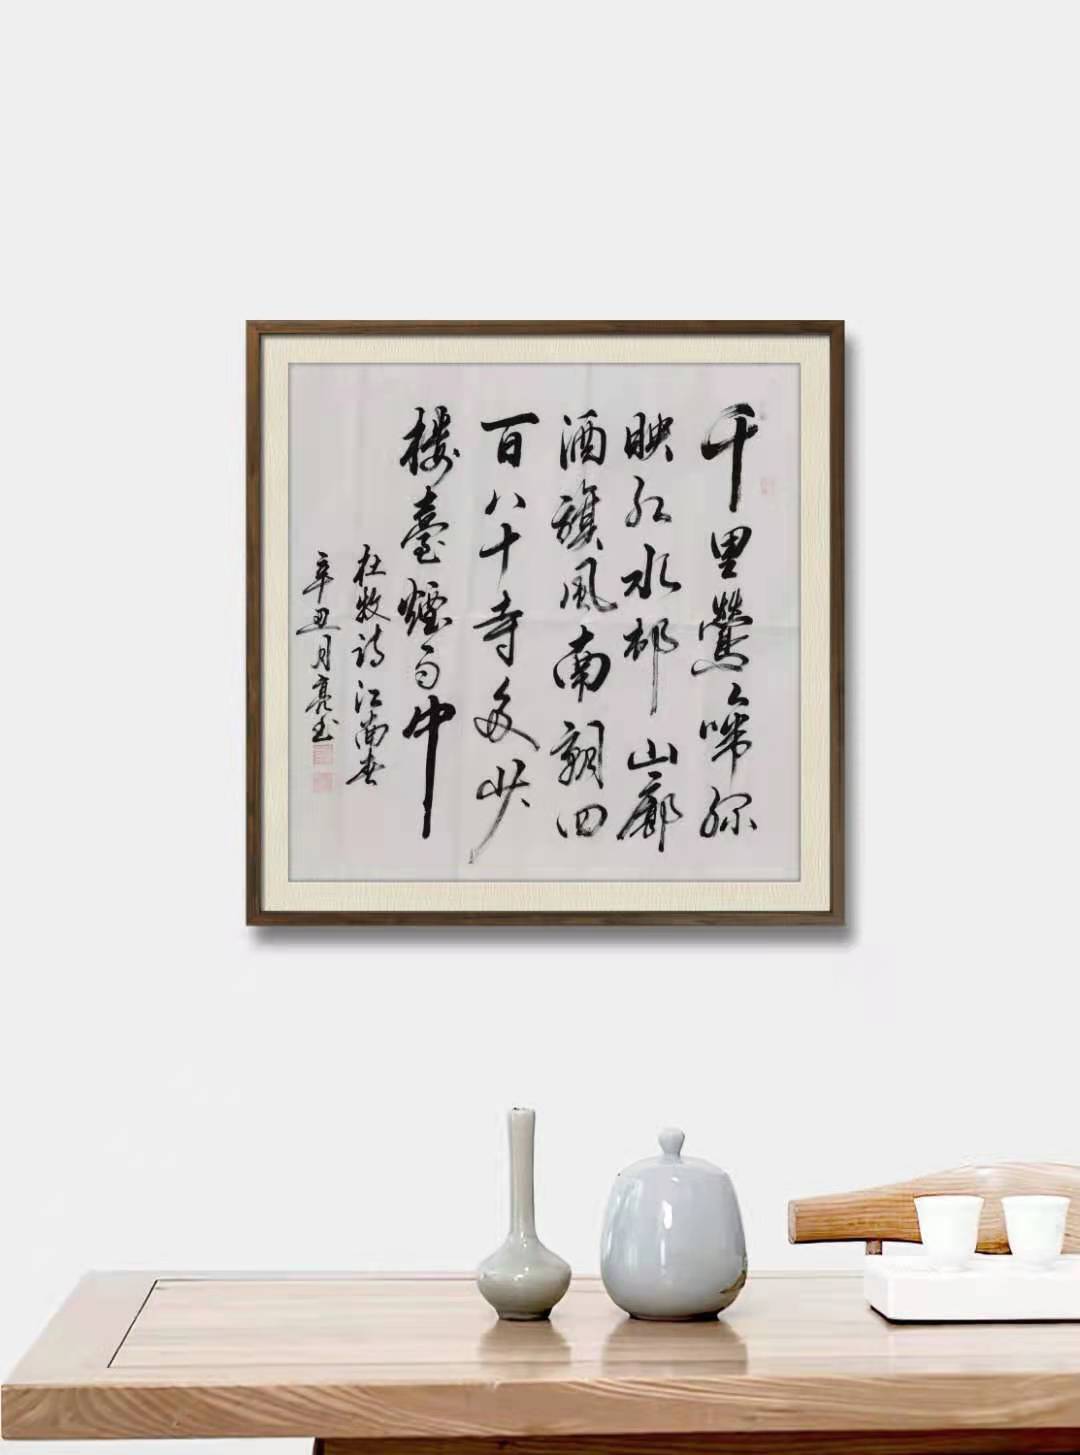 千里鶯啼绿
映红水邨山廓
酒旗風南朝四
百八十寺多少
樓臺煙雨中
杜牧诗江南春
辛丑月亮书